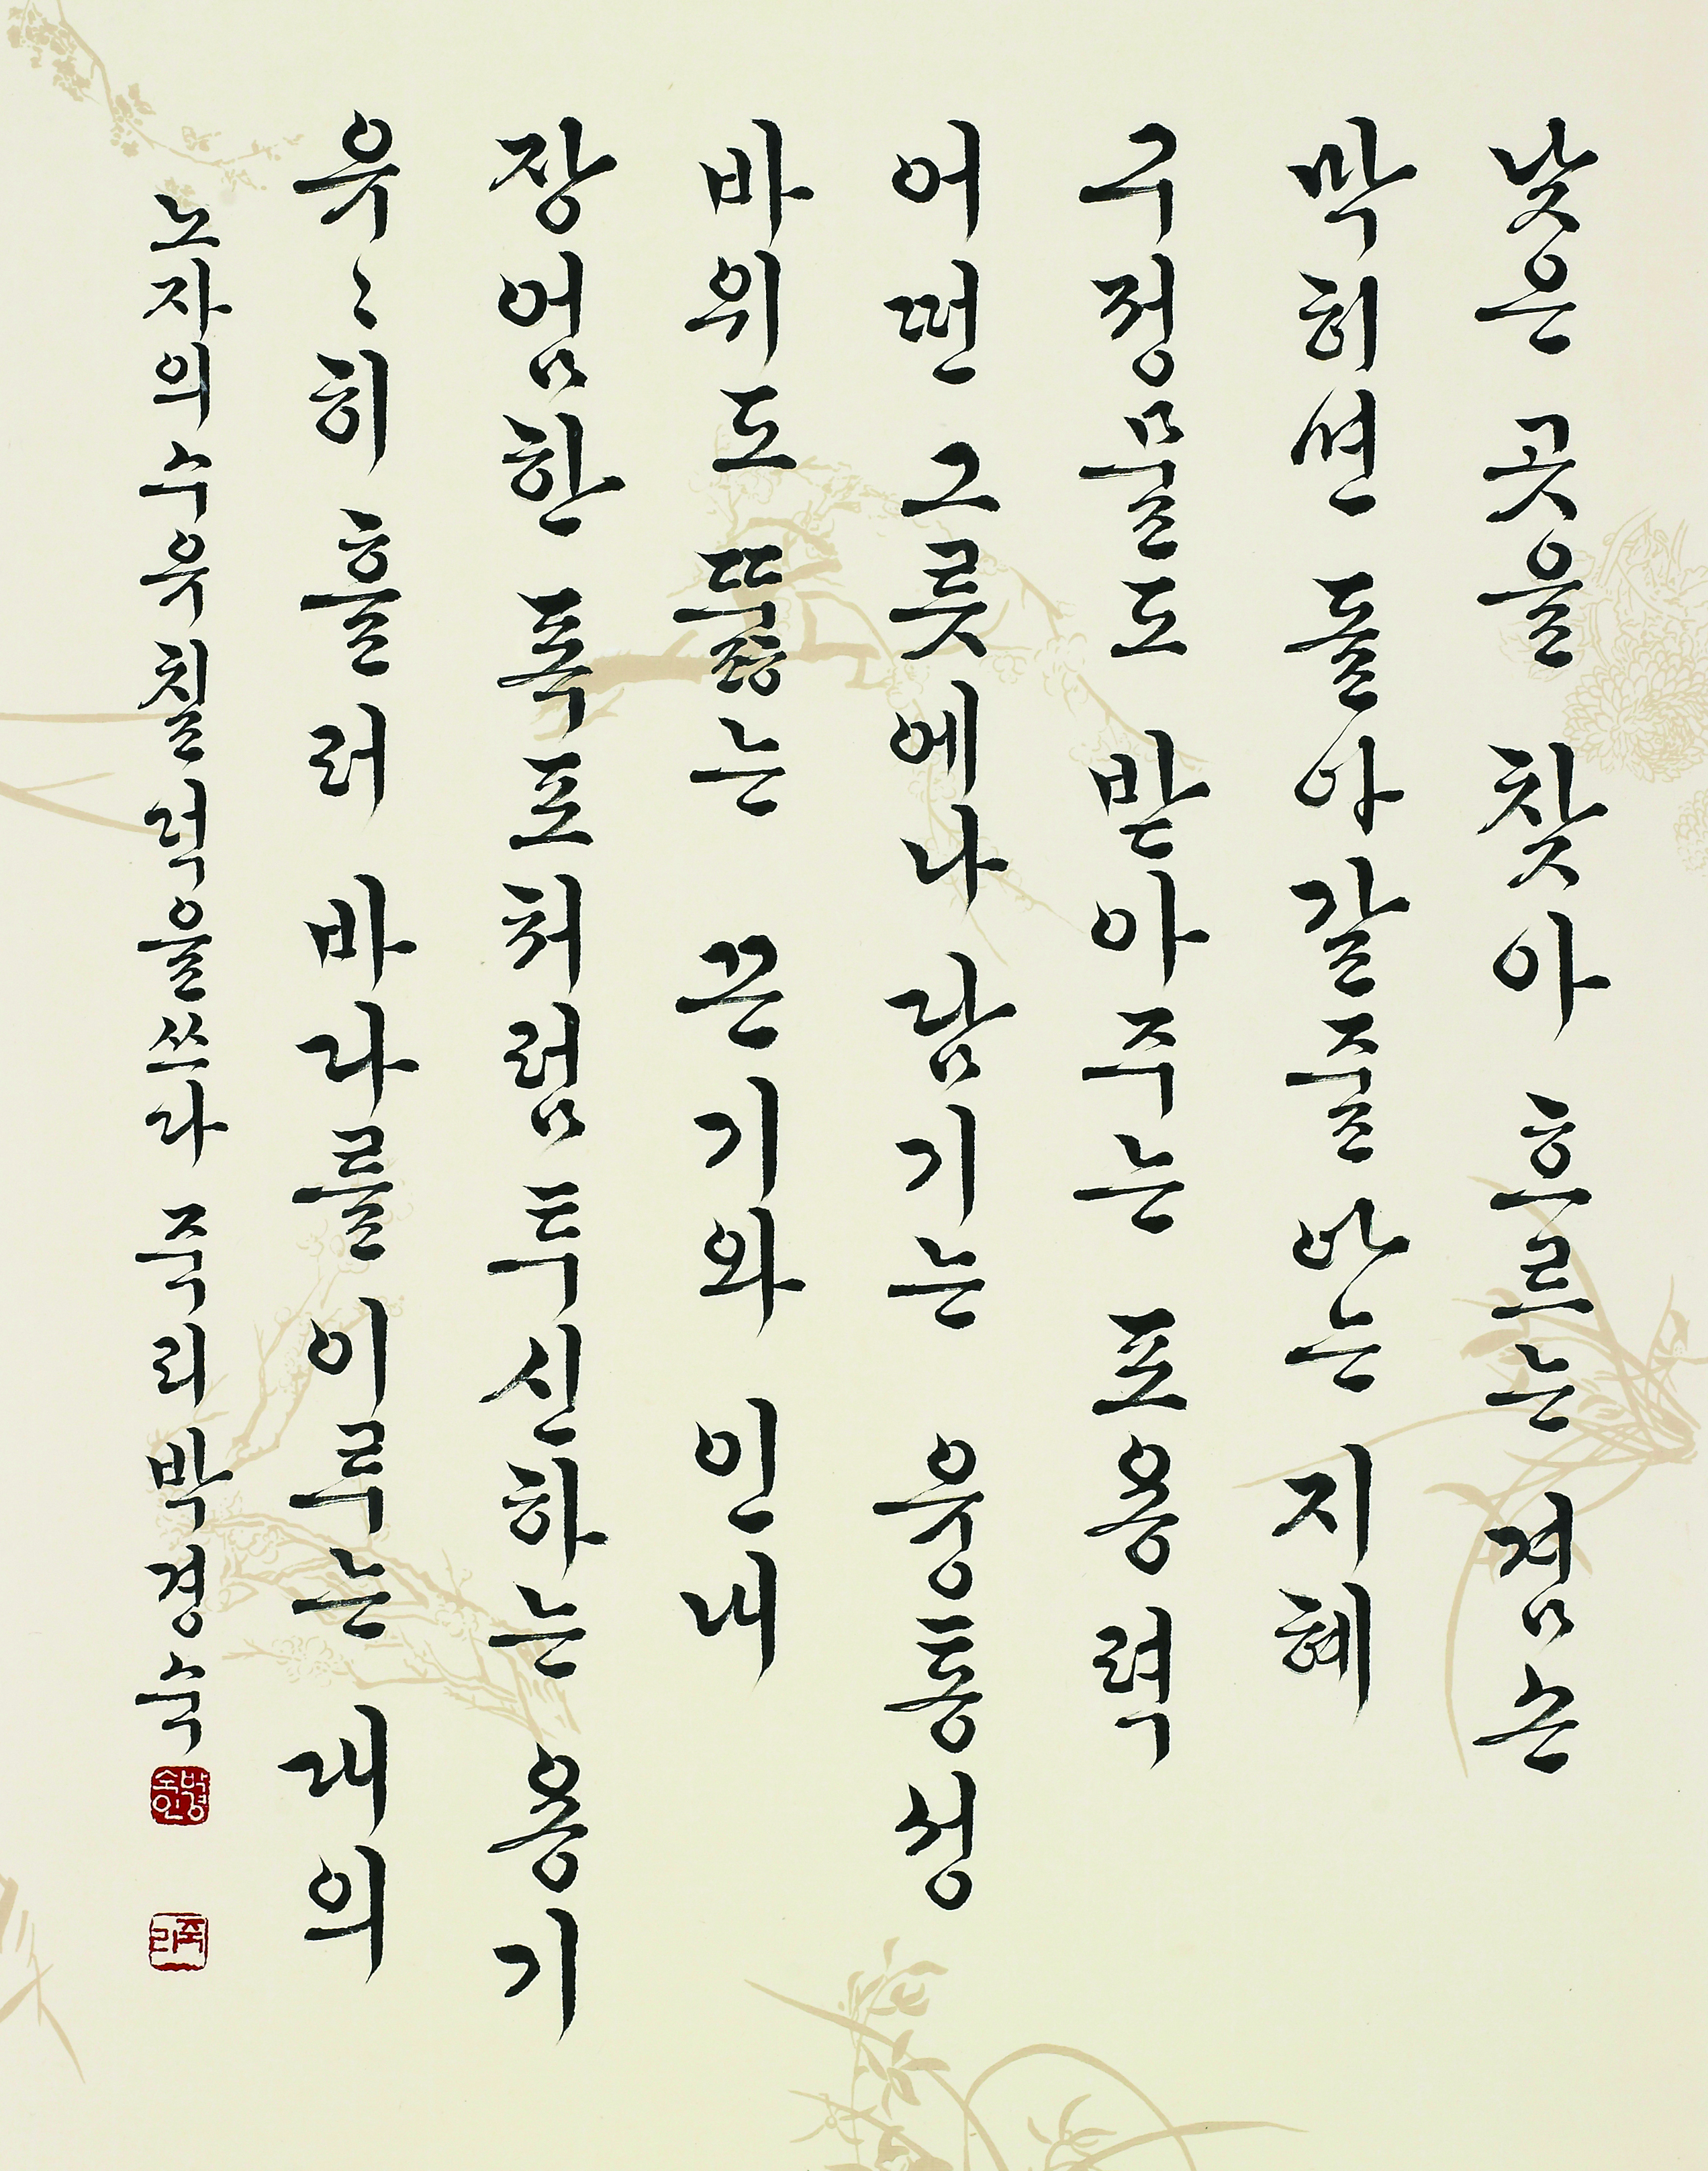 낮은 곳을 찾아 흐르는 겸손
막히면 돌아갈줄 아는 지혜
구정물도 받아주는 포용력
어떤 그릇에나 담기는 융통성
바위도 뚫는 끈기와 인내
장엄한 폭포처럼 투신하는 용기
유〻히 흘러 바다를 이루는 대의
노자의 수유칠덕을 쓰다 죽리 박경숙
박경숙인
죽리